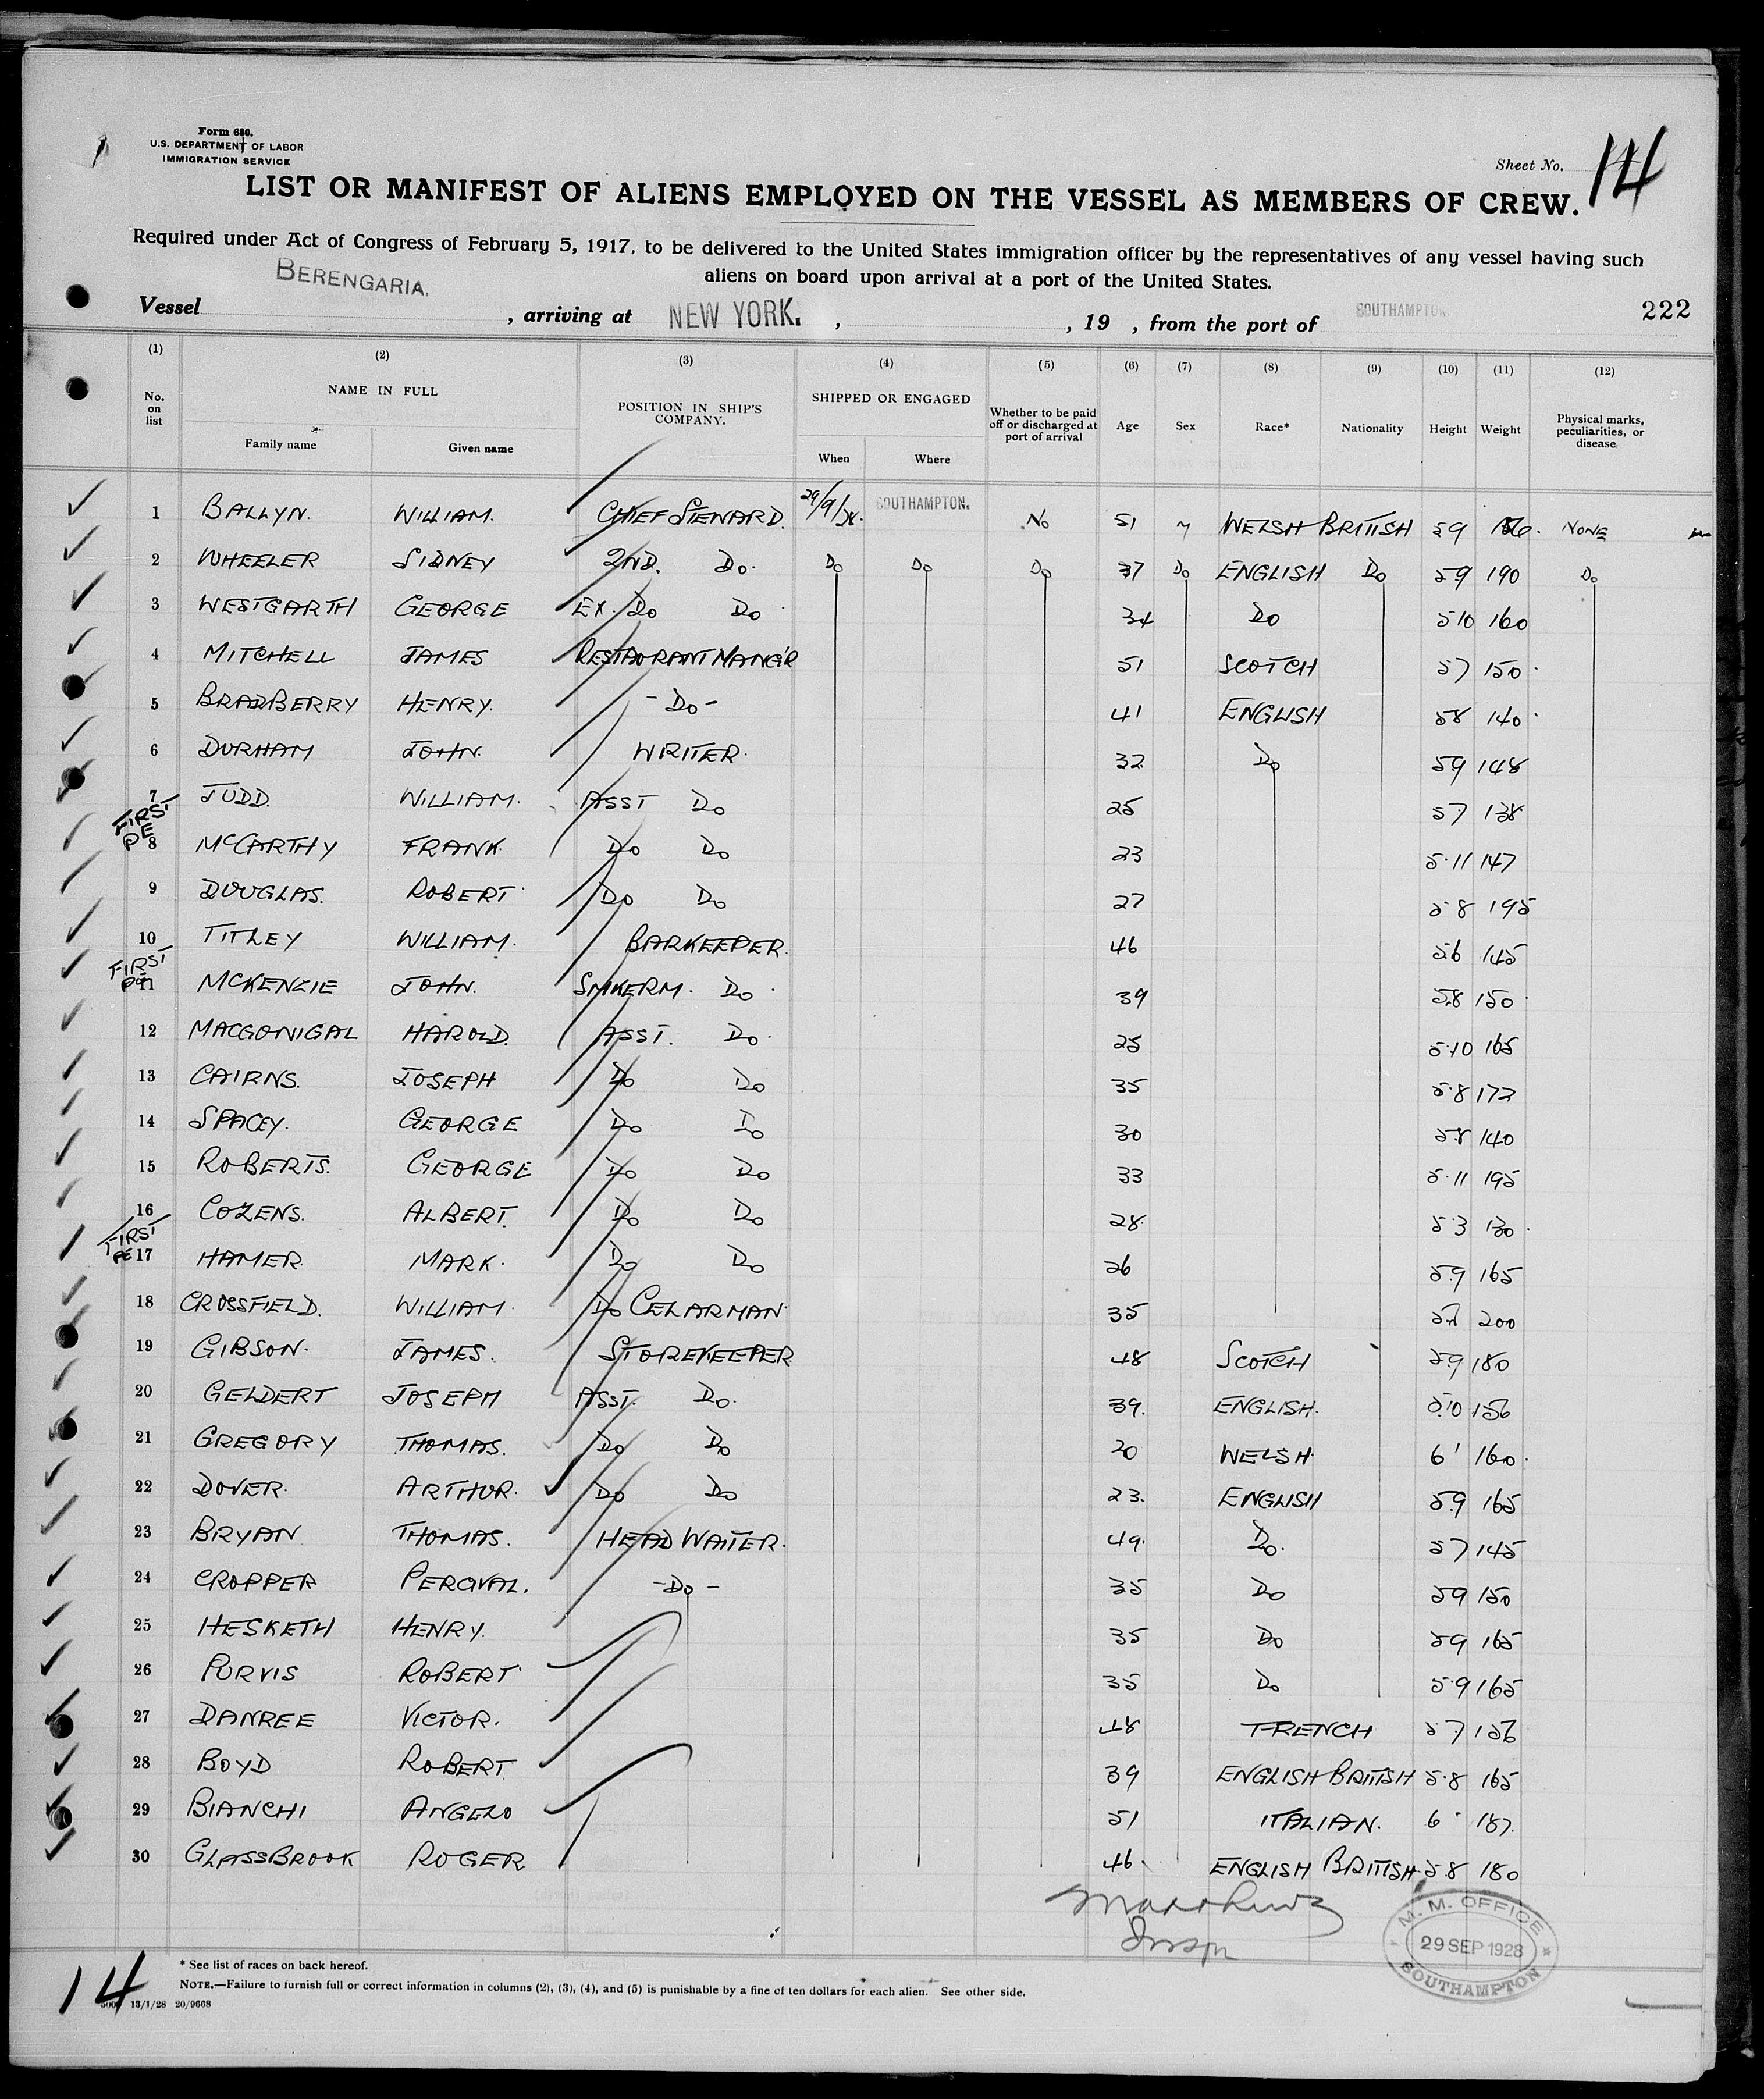 Form 680.
U.S. DEPARTMENT OF LABOR
IMMIGRATION SERVICE
Sheet No. 14
LIST OR MANIFEST OF ALIENS EMPLOYED ON THE VESSEL AS MEMBERS OF CREW.
Required under Act of Congress of February 5, 1917, to be delivered to the United States immigration officer by the representatives of any vessel having such
aliens on board upon arrival at a port of the United States.
Vessel BERENGARIA. , arriving at NEW YORK. , , 19 , from the port of SOUTHAMPTON. 222
(1) (2) (3) (4) (5) (6) (7) (8) (9) (10) (11) (12)
No. on list NAME IN FULL Family name Given name POSITION IN SHIP'S COMPANY. SHIPPED OR ENGAGED When Where Whether to be paid off or discharged at port of arrival Age Sex Race* Nationality Height Weight Physical marks, peculiarities, or disease.
1 BALLYN. WILLIAM. CHIEF STEWARD. 29/9/28. SOUTHAMPTON. No 51 M WELSH BRITISH 5 9 NONE
2 WHEELER SIDNEY 2ND. Do. Do Do Do 37 Do ENGLISH Do 5 9 190 Do
3 WESTGARTH GEORGE EX. Do Do 34 Do 5 10 160
4 MITCHELL JAMES RESTAURANT MANG'R 51 SCOTCH 5 7 150.
5 BRADBERRY HENRY. -Do- 41 ENGLISH 5 8 140.
6 DURHAM JOHN. WRITER. 32 Do 5 9 148
7 JUDD. WILLIAM. ASST Do 25 5 7 138
FIRST
PE
8 McCARTHY FRANK. Do Do 23 5.11 147
9 DOUGLAS. ROBERT Do Do 27 5 8 195
10 TITLEY WILLIAM. BARKEEPER. 46 5.6 145
FIRST
11 MCKENZIE JOHN. SMKERM. Do. 39 5.8 150.
12 MACGONIGAL HAROLD. ASST. Do. 25 5.10 165
13 CAIRNS. JOSEPH Do Do 35 5.8 172
14 SPACEY. GEORGE Do Do 30 5.8 140
15 ROBERTS. GEORGE Do Do 33 5.11 195
16 COZENS. ALBERT. Do Do 28. 5.3 130.
FIRST
PE
17 HAMER. MARK. Do Do 26 5.9 165
18 CROSSFIELD. WILLIAM. Do CELARMAN. 35 200
19 GIBSON. JAMES. STOREKEEPER 48 SCOTCH 5 9 180
20 GELDERT JOSEPH ASST. Do. 39. ENGLISH. 5.10 156
21 GREGORY THOMAS. Do Do 20 WELSH. 6' 160.
22 DOVER. ARTHUR. Do Do 23. ENGLISH 5.9 165
23 BRYAN THOMAS. HEAD WAITER. 49. Do. 5 7 145
24 CROPPER PERCIVAL. -Do- 35 Do 5 9 150
25 HESKETH HENRY. 35 Do 5 9 165
26 PURVIS ROBERT 35 Do 5.9 165
27 DANREE VICTOR. 48 FRENCH 5 7 156
28 BOYD ROBERT. 39 ENGLISH BRITISH 5.8 165
29 BIANCHI ANGELO 51 ITALIAN. 6 187.
30 GLASSBROOK ROGER 46. ENGLISH BRITISH. 5 8 180
M. M. OFFICE
29 SEP 1928
SOUTHAMPTON
* See list of races on back hereof.
NOTE.—Failure to furnish full or correct information in columns (2), (3), (4), and (5) is punishable by a fine of ten dollars for each alien. See other side.
14
13/1/28 20/9668